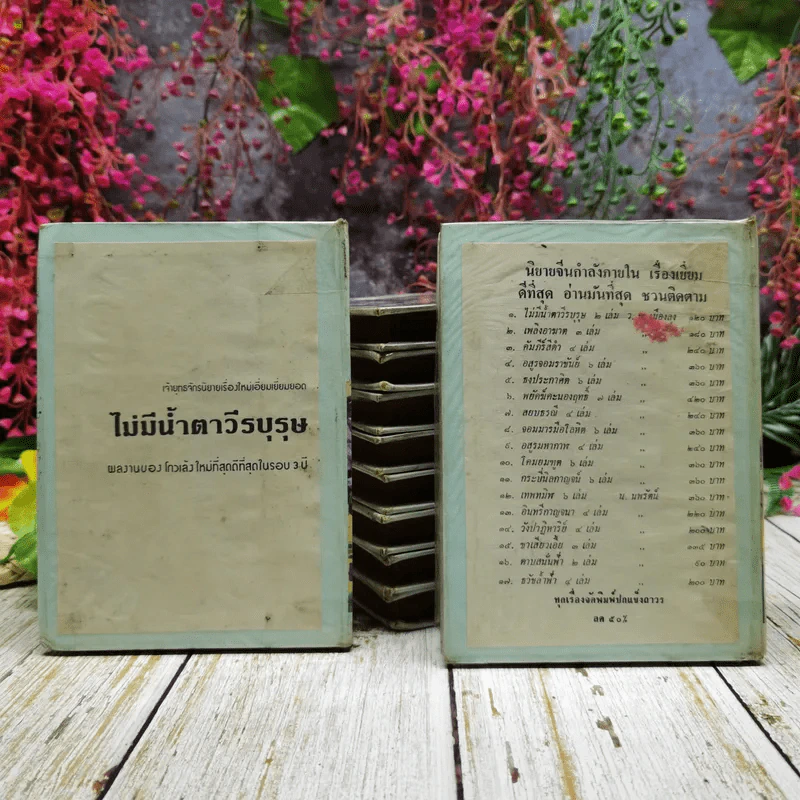 เจ้ายุทธจักรนิยายเรื่องใหม่เอี่ยมเยี่ยมยอด
ไม่มีน้ำตาวีรบุรุษ
ผลงานของ โกวเล้ง ใหม่ที่สุดดีที่สุดในรอบ ๓ ปี
นิยายจีนกำลังภายใน เรื่องเยี่ยม
ดีที่สุด อ่านมันที่สุด ชวนติดตาม
๑. ไม่มีน้ำตาวีรบุรุษ ๒ เล่ม ว. ณ เมืองลุง ๑๒๐ บาท
๒. เพลิงอาฆาต ๓ เล่ม ,, ๑๘๐ บาท
๓. คัมภีร์สีดำ ๔ เล่ม ,, ๒๔๐ บาท
๔. อสูรจอมราชันย์ ๖ เล่ม ,, ๓๖๐ บาท
๕. ธงประกาศิต ๖ เล่ม ,, ๓๖๐ บาท
๖. พยัคฆ์คะนองฤทธิ์ ๗ เล่ม ,, ๔๒๐ บาท
๗. สยบธรณี ๔ เล่ม ,, ๒๔๐ บาท
๘. จอมมารมือโลหิต ๖ เล่ม ,, ๓๖๐ บาท
๙. อสูรมหากาฬ ๔ เล่ม ,, ๒๔๐ บาท
๑๐. โคมยมทูต ๖ เล่ม ,, ๓๖๐ บาท
๑๑. กระบี่นิลกาญจน์ ๖ เล่ม ,, ๓๖๐ บาท
๑๒. เทพทมิฬ ๖ เล่ม น. นพรัตน์ ๓๖๐ บาท
๑๓. อินทรีกาญจนา ๔ เล่ม ,, ๒๒๐ บาท
๑๔. วังปาฏิหาริย์ ๔ เล่ม ,, บาท
๑๕. ชาเสียวเอี้ย ๓ เล่ม ,, ๑๓๕ บาท
๑๖. ดาบสนั่นฟ้า ๒ เล่ม ,, ๙๐ บาท
๑๗. ธวัชล้ำฟ้า ๔ เล่ม ,, ๒๐๐ บาท
ทุกเรื่องจัดพิมพ์ปกแข็งถาวร
ลด ๕๐%